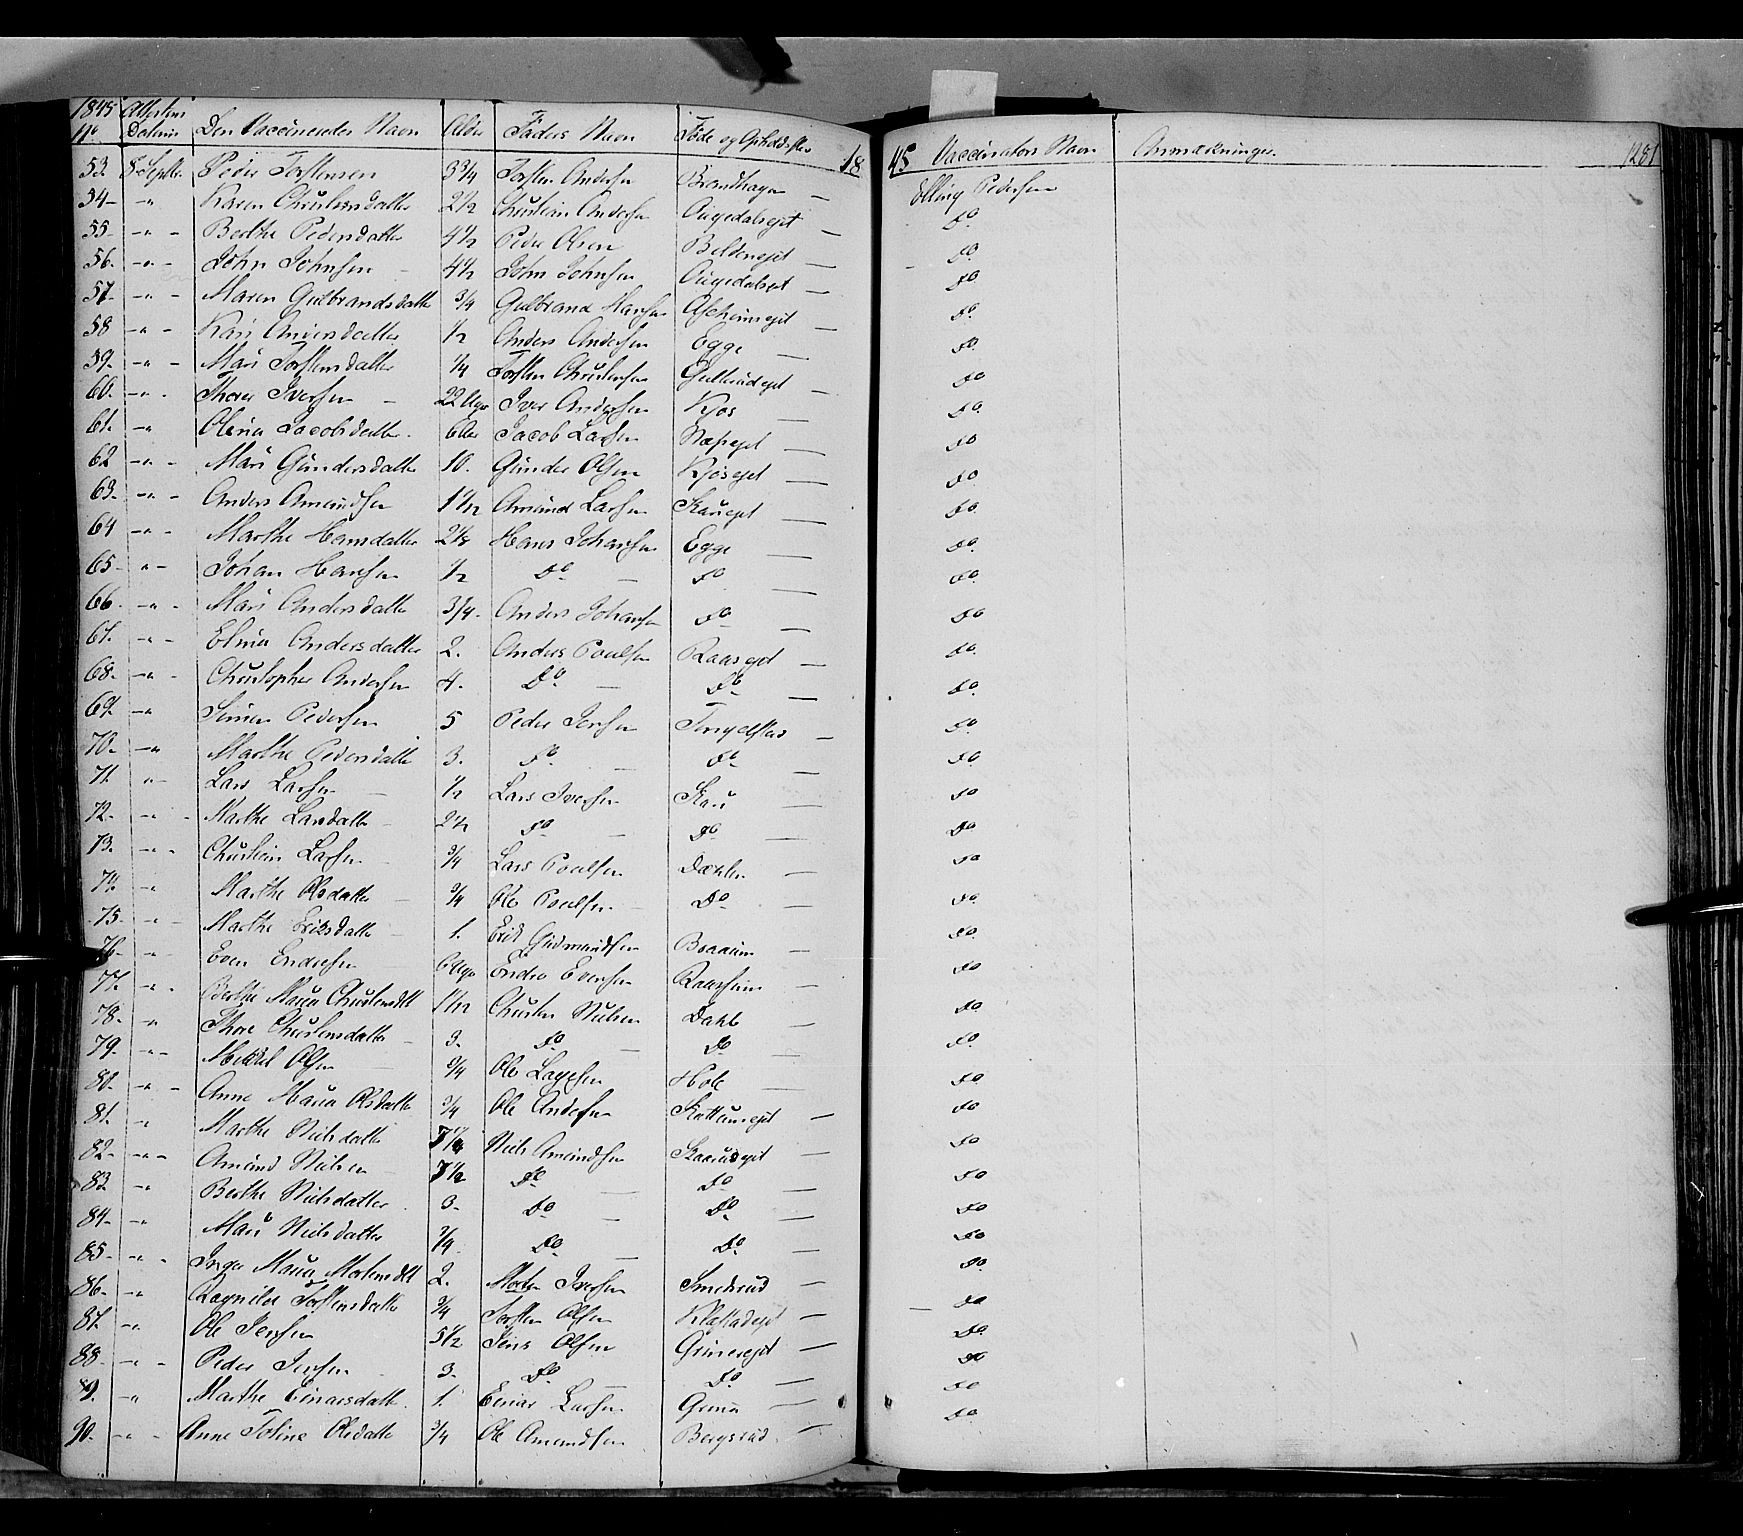 1845 Attestens 18 45 1281
No Datum Den Vaccineredes Navn Alder Faders Navn Føde og Opholdssted Vaccinators Navn Anmærkninger.
53. 8 Septbr Peder Torstensen 3 3/4 Torsten Andersen Brandhagen — Elling Pedersen
54 — " Karen Christensdatter 2 1/2 Christian Andersen — Do.
55. — " — Berthe Pedersdatter 4 1/2 Peder Olsen Beldeneyet — Do.
56. — " — John Johnsen — 4 1/2 John Johnsen — Do.
57. — " — Maren Gulbrandsdatter 3/4 Gulbrand Hansen Ascheimeyet — Do.
58 — " — Kari Andersdatter 1/2 Anders Andersen Egge — Do.
59. — " — Mari Torstensdatter 1/4 Torsten Christensen — Do
60. — " . Thorer Iversen — 22 Uger Iver Andersen Kjos — Do.
61. — " Olena Jacobsdatter. 6 Uger Jacob Larsen Næseyet — Do
62 — " — Mari Gundersdatter 10. Gunder Olsen Kjoseyet — Do.
63. — " — Anders Amundsen 1 1/2 Amund Larsen Skarieyet — Do.
64 — " — Marthe Hansdatter 2 1/8 Hans Johansen Egge — Do.
65 — " — Johan Hansen 1/2 Do. — Do — Do.
66. — " . Mari Andersdatter 3/4. Anders Johansen Do — Do
67. — " — Elina Andersdatter 2. Anders Poulsen Raaseyet — Do.
68. — " . Christopher Andersen 4. Do. — Do. — Do.
69. — " Simen Pedersen 5 Peder Jensen Tingelstad — Do
70. — " Marthe Pedersdatter 3. Do. — Do. — Do.
71. " — Lars Larsen — 1/2 Lars Iversen Skari — Do
72. — " - Marthe Larsdatter 2 1/2 Do — Do — Do
73. — " . Christian Larsen — 3/4 Lars Poulsen Dæhlen — Do
74. — " Marthe Olsdatter — 3/4 Ole Poulsen Do. — Do.
75 — " — Marthe Eriksdatter — 1. Erik Gudmundsen — Do.
76. — " Even Endresen 6 Uger Endre Evensen Raasheim — Do
77. — " . Berthe Maria Christensdtt 1 1/12 Christen Nielsen Dahle — Do
78. — " Thore Christensdatter — 3. Do — Do — Do.
79. — " — Mikkel Olsen 3/4 Ole Lagesen Hole — Do
80. — " — Anne Maria Olsdatter 3/4 Ole Andersen Skattumeyet — Do
81. — " Marthe Nielsdatter 7 1/4 Niels Amundsen Skaarudeyet — Do
82 — " — Amund Nielsen — 7 1/2 Do — Do — Do
83. — " Berthe Nielsdatter . 3. Do. — Do. — Do
84. — " Mari Nielsdatter 3/4. Do — Do. — Do
85. — " . Inger Maria Mortensdtt 2. Morten Iversen Smedsrud — Do.
86. — " Ragnild Torstensdatter 3/4 Torsten Olsen Klæstadeyet — Do
87. — " Ole Jensen 5 1/2 Jens Olsen Grineeyet — Do.
88. — " — Peder Jensen . 3. Do — Do. — Do
89. — " Marthe Einarsdatter. 1. Einar Larsen Grina — Do
90. — " . Anne Toline Olsdatter 3/4 Ole Amundsen Bergsrud. — Do.